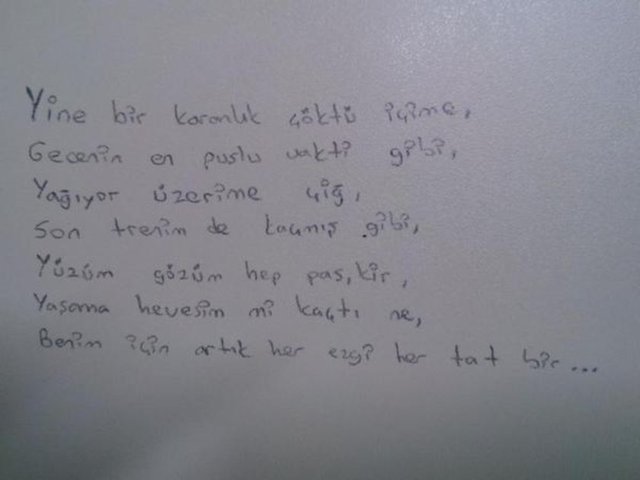 Yine bir karanlık çöktü içime,
Gecenin en puslu vakti gibi,
Yağıyor üzerime çiğ,
Son trenim de kaçmış gibi,
Yüzüm gözüm hep pas, kir,
Yaşama hevesim mi kaçtı ne,
Benim için artık her ezgi her tat bir...